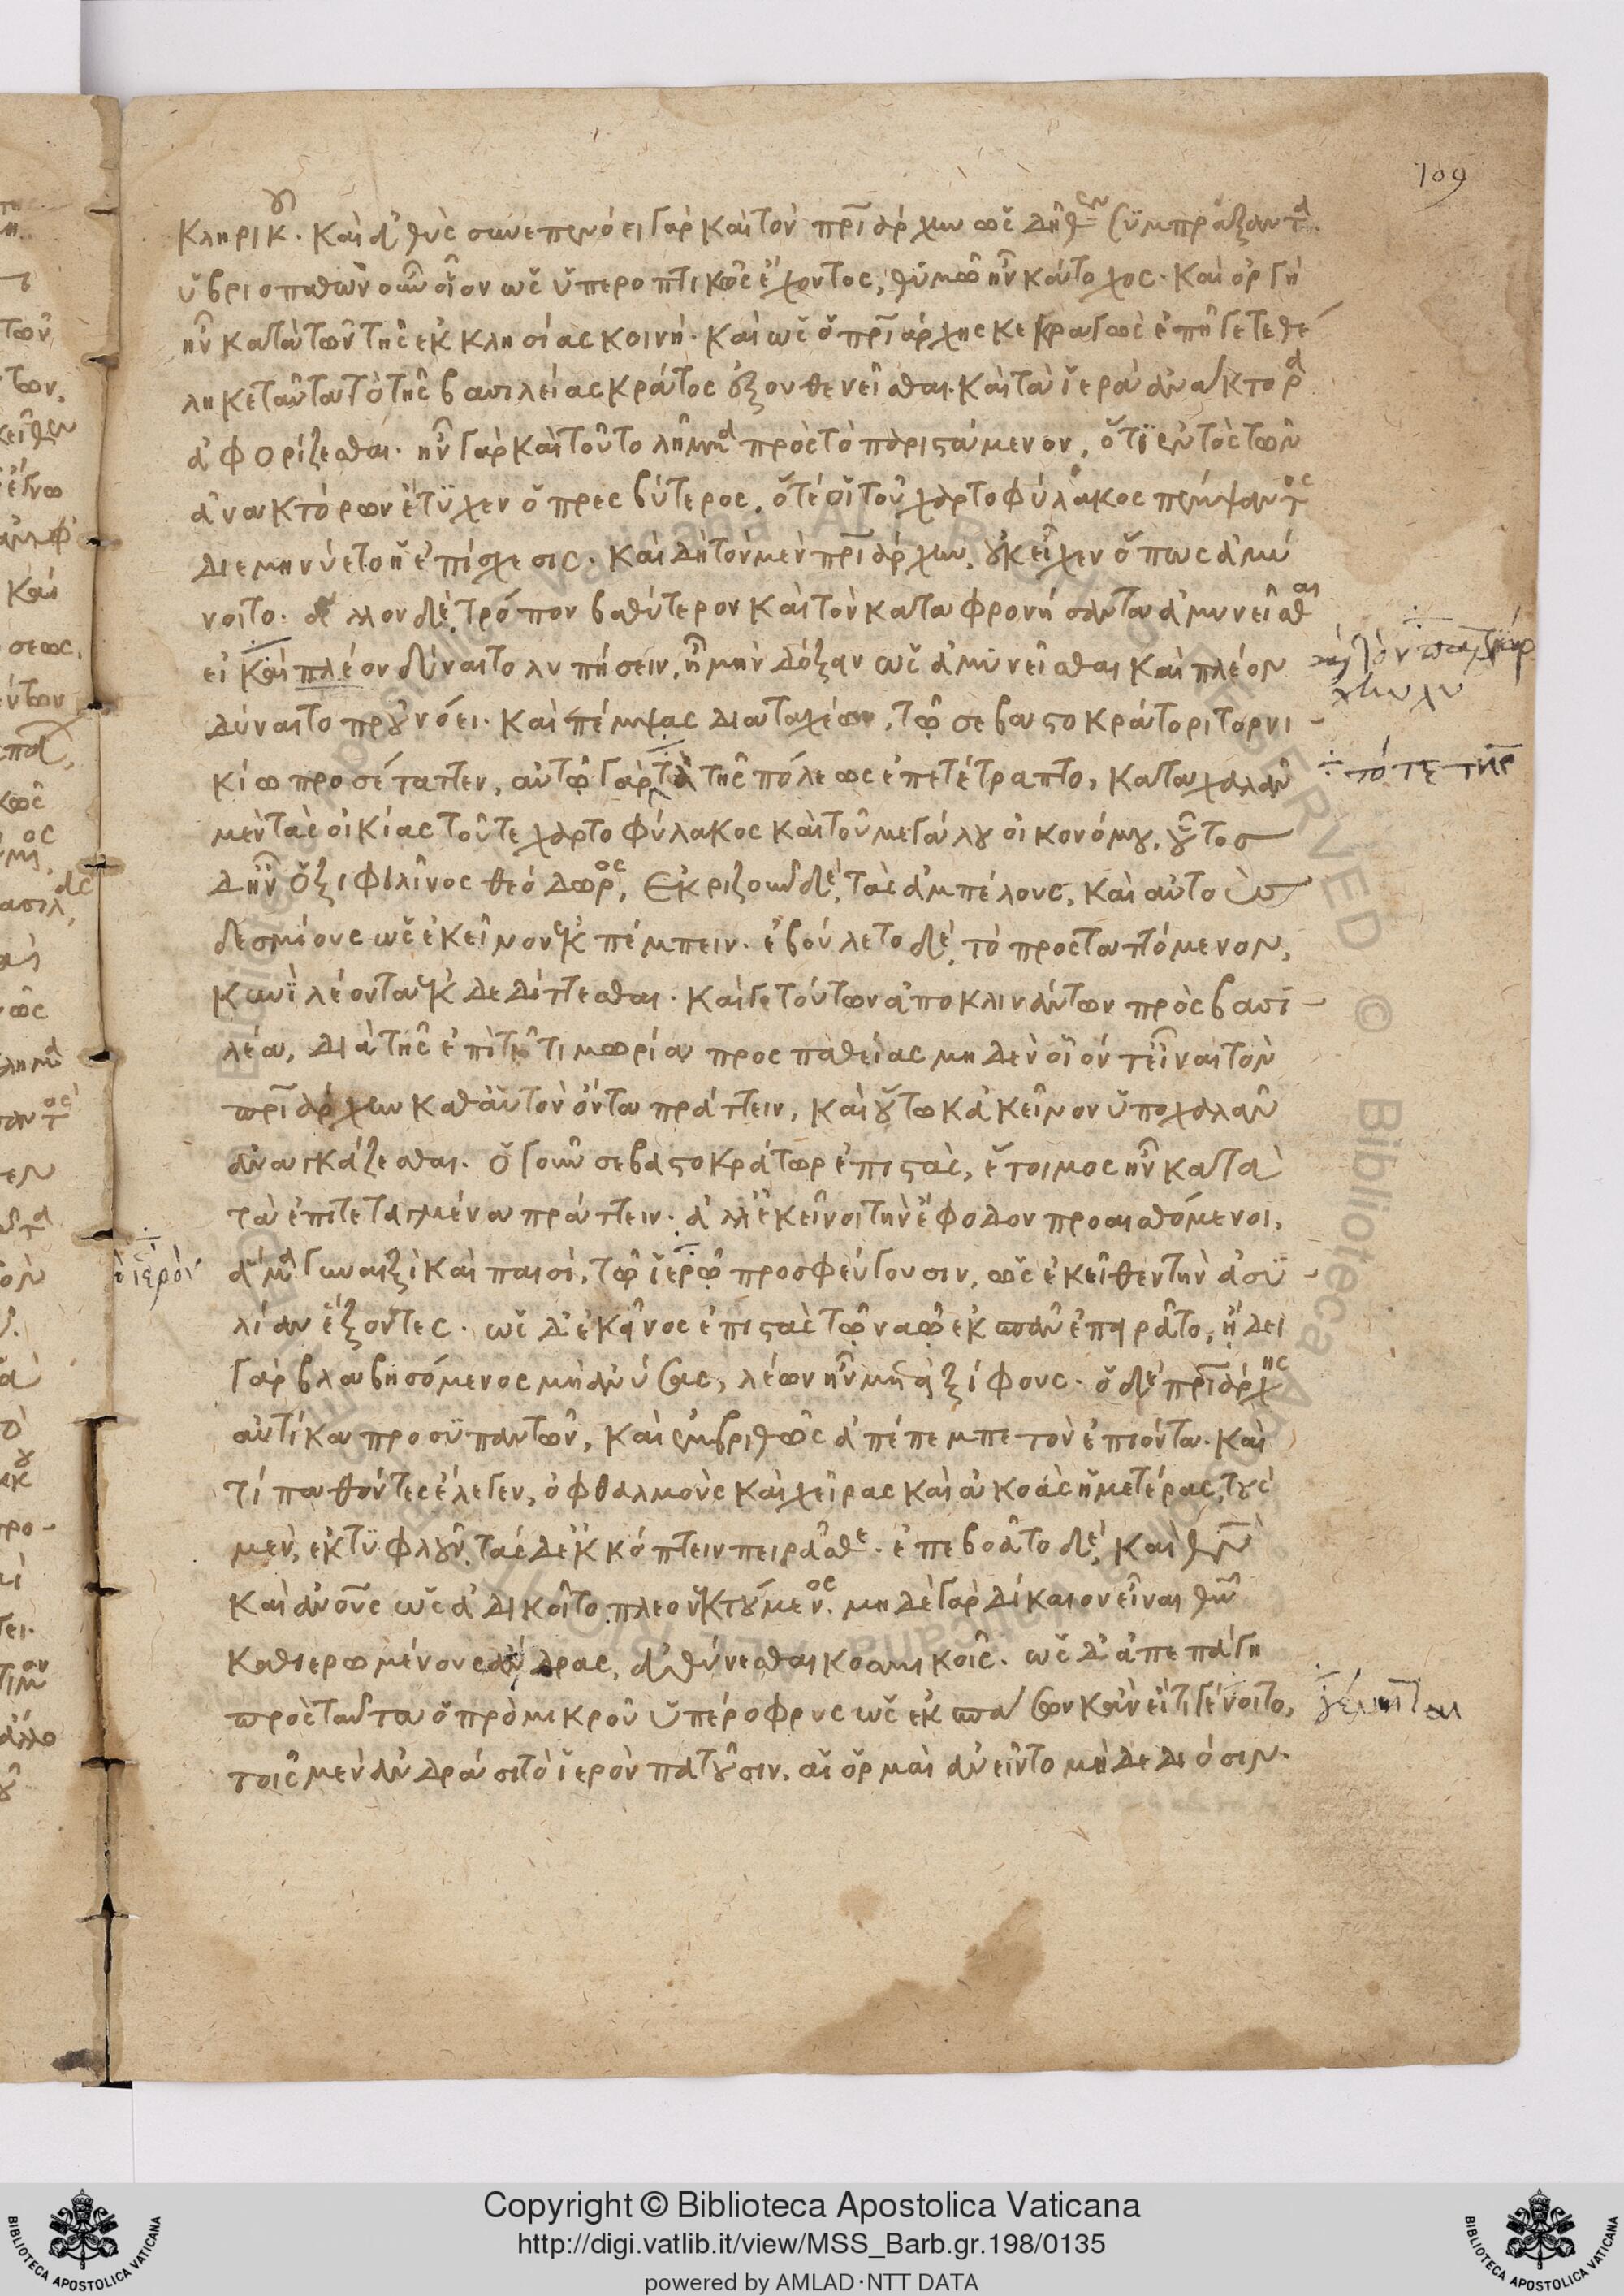 109
κληρικοὺς. καὶ εὐθὺς συνεπενόει γὰρ καὶ τὸν πριάρχην ὡς δῆθεν συμπράξαντα.
ὕβριοπαθῶν οὖν οἷον ὡς ὑπεροπτικῶς ἔχοντος, θυμῶ ἦν κάτοχος. καὶ ὀργὴ
ἦν κατὰ τῶν τῆς ἐκκλησίας κοινή. καὶ ὡς ὁ πριάρχης κεκραγὼς ἐπῆγε τεθέ
ληκε ταῦτα τὸ τῆς βασιλείας κράτος ἐξουθενεῖσθαι. καὶ τὰ ἱερὰ ἀνάκτορα
ἀφορίζεσθαι. ἦν γὰρ καὶ τοῦτο λῆμμα πρὸς τὸ παριστάμενον, ὅτι ἐντὸς τῶν
ἀνακτόρων ἔτυχεν ὁ πρεσβύτερος, ὅτέ οἱ τοῦ χαρτοφύλακος πέμψαντος
διεμηνύετο ἡ ἐπίσχεσις. καὶ δὴ τὸν μὲν πριάρχην, οὐκ εἶχεν ὅπως ἀμύ
νοιτο. ἄλλον δὲ τρόπον βαθύτερον καὶ τὸν καταφρονήσαντα ἀμυνεῖσθαι
εἰ καὶ πλέον δύναιτο λυπήσειν, ἢ μὴν δόξαν ὡς ἀμυνεῖσθαι καὶ πλέον
δύναιτο προὐνόει. καὶ πέμψας διαταχέων, τῶ σεβαστοκράτορι τορνι-
κίω προσέταττεν, αὐτῶ γὰρ τὰ τῆς πόλεως ἐπετέτραπτο, καταχαλᾶν
μὲν τὰς οἰκίας τοῦ τε χαρτοφύλακος καὶ τοῦ μεγάλου οἰκονόμου, οὗτος
δ' ἦν ὁ ξιφιλῖνος θεόδωρος, ἐκριζοῦν δὲ τὰς ἀμπέλους, καὶ αὐτοὺς
δεσμίους ὡς ἐκεῖνον ἐκπέμπειν. ἐβούλετο δὲ τὸ προσταττόμενον,
κυνὶ λέοντα ἐκδεδίττεσθαι. καί γε τούτων ἀποκλινάντων πρὸς βασι-
λέα, διὰ τῆς ἐπὶ τῆ τιμωρία προσπαθείας μηδὲν οἷόν τ' εἶναι τὸν
πριάρχην καθαὑτὸν ὄντα πράττειν, καὶ οὕτω κἀκεῖνον ὑποχαλᾶν
ἀναγκάζεσθαι. ὁ γοῦν σεβαστοκράτωρ ἐπιστὰς, ἕτοιμος ἦν κατὰ
τὰ ἐπιτεταγμένα πράττειν. ἀλλ' ἐκεῖνοι τὴν ἔφοδον προαισθόμενοι,
ἅμα γυναιξὶ καὶ παισί, τῶ ἱερῶ προσφεύγουσιν, ὡς ἐκεῖθεν τὴν ἀσυ-
λίαν ἕξοντες. ὡς δ' ἐκεῖνος ἐπιστὰς τῶ ναῶ ἐκσπᾶν ἐπειρᾶτο, ἤδει
γὰρ βλαβησόμενος μὴ ἀνύσας, λέων ἦν μετὰ ξίφους. ὁ δὲ πριάρχης
αὐτίκα προσυπαντῶν, καὶ ἐμβριθῶς ἀπέπεμπε τὸν ἐπιόντα. καὶ
τί παθόντες ἔλεγεν, ὀφθαλμοὺς καὶ χεῖρας καὶ ἀκοὰς ἡμετέρας, τοὺς
μὲν, ἐκτυφλοῦν, τὰς δ' ἐκκόπτειν πειρᾶσθε. ἐπεβοᾶτο δὲ καὶ θεὸν
καὶ ἀνους ὡς ἀδικοῖτο πλεονεκτούμενος. μηδὲ γὰρ δίκαιον εἶναι θεῶ
καθιερωμένους ἄνδρας, εὐθύνεσθαι κοσμικοῖς. ὡς δ' ἀπεπάγη
πρὸς ταῦτα ὁ πρὸ μικροῦ ὑπέροφρυς ὡς ἐκσπάσων κἂν εἴ τι γένοιτο,
τοῖς μὲν ἀνδράσι τὸ ἱερὸν πατοῦσιν, αἱ ὁρμαὶ ἀνεῖντο μὴ δεδιόσιν.
τότε τῆς
τὸ ἱερὸν
γένηται
Copyright © Biblioteca Apostolica Vaticana
http://digi.vatlib.it/view/MSS_Barb.gr.198/0135
powered by AMLAD·NTT DATA
BIBLIOTECA APOSTOLICA VATICANA
BIBLIOTECA APOSTOLICA VATICANA